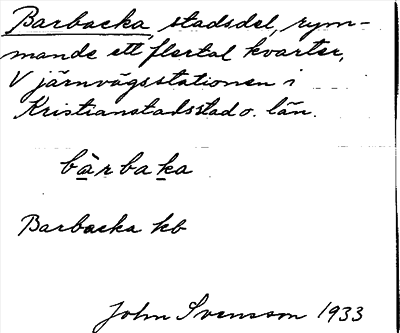 Barbacka, stadsdel, rym-
mande ett flertal kvarter,
V järnvägsstationen i
Kristianstads stad o. län.
bàrbaka
Barbacka kb
John Svensson 1933